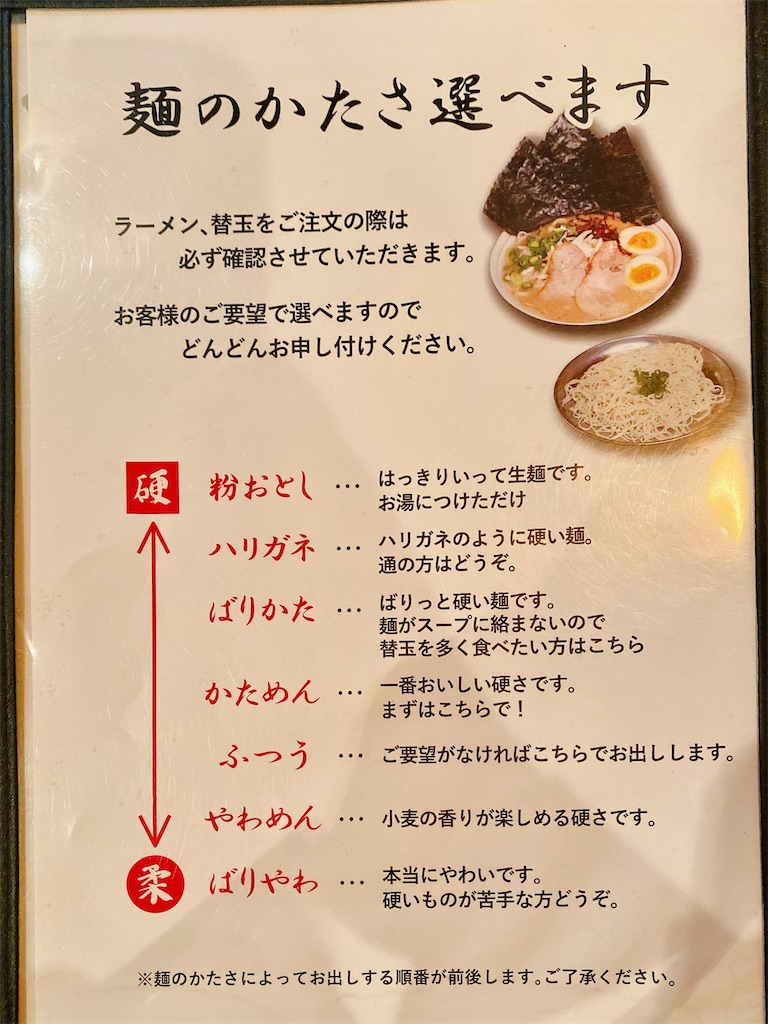 麺のかたさ選べます
ラーメン、替玉をご注文の際は
必ず確認させていただきます。
お客様のご要望で選べますので
どんどんお申し付けください。
硬 粉おとし … はっきりいって生麺です。
お湯につけただけ
ハリガネ … ハリガネのように硬い麺。
通の方はどうぞ。
ばりかた … ばりっと硬い麺です。
麺がスープに絡まないので
替玉を多く食べたい方はこちら
かためん … 一番おいしい硬さです。
まずはこちらで！
ふつう … ご要望がなければこちらでお出しします。
やわめん … 小麦の香りが楽しめる硬さです。
柔 ばりやわ … 本当にやわいです。
硬いものが苦手な方どうぞ。
※麺のかたさによってお出しする順番が前後します。ご了承ください。